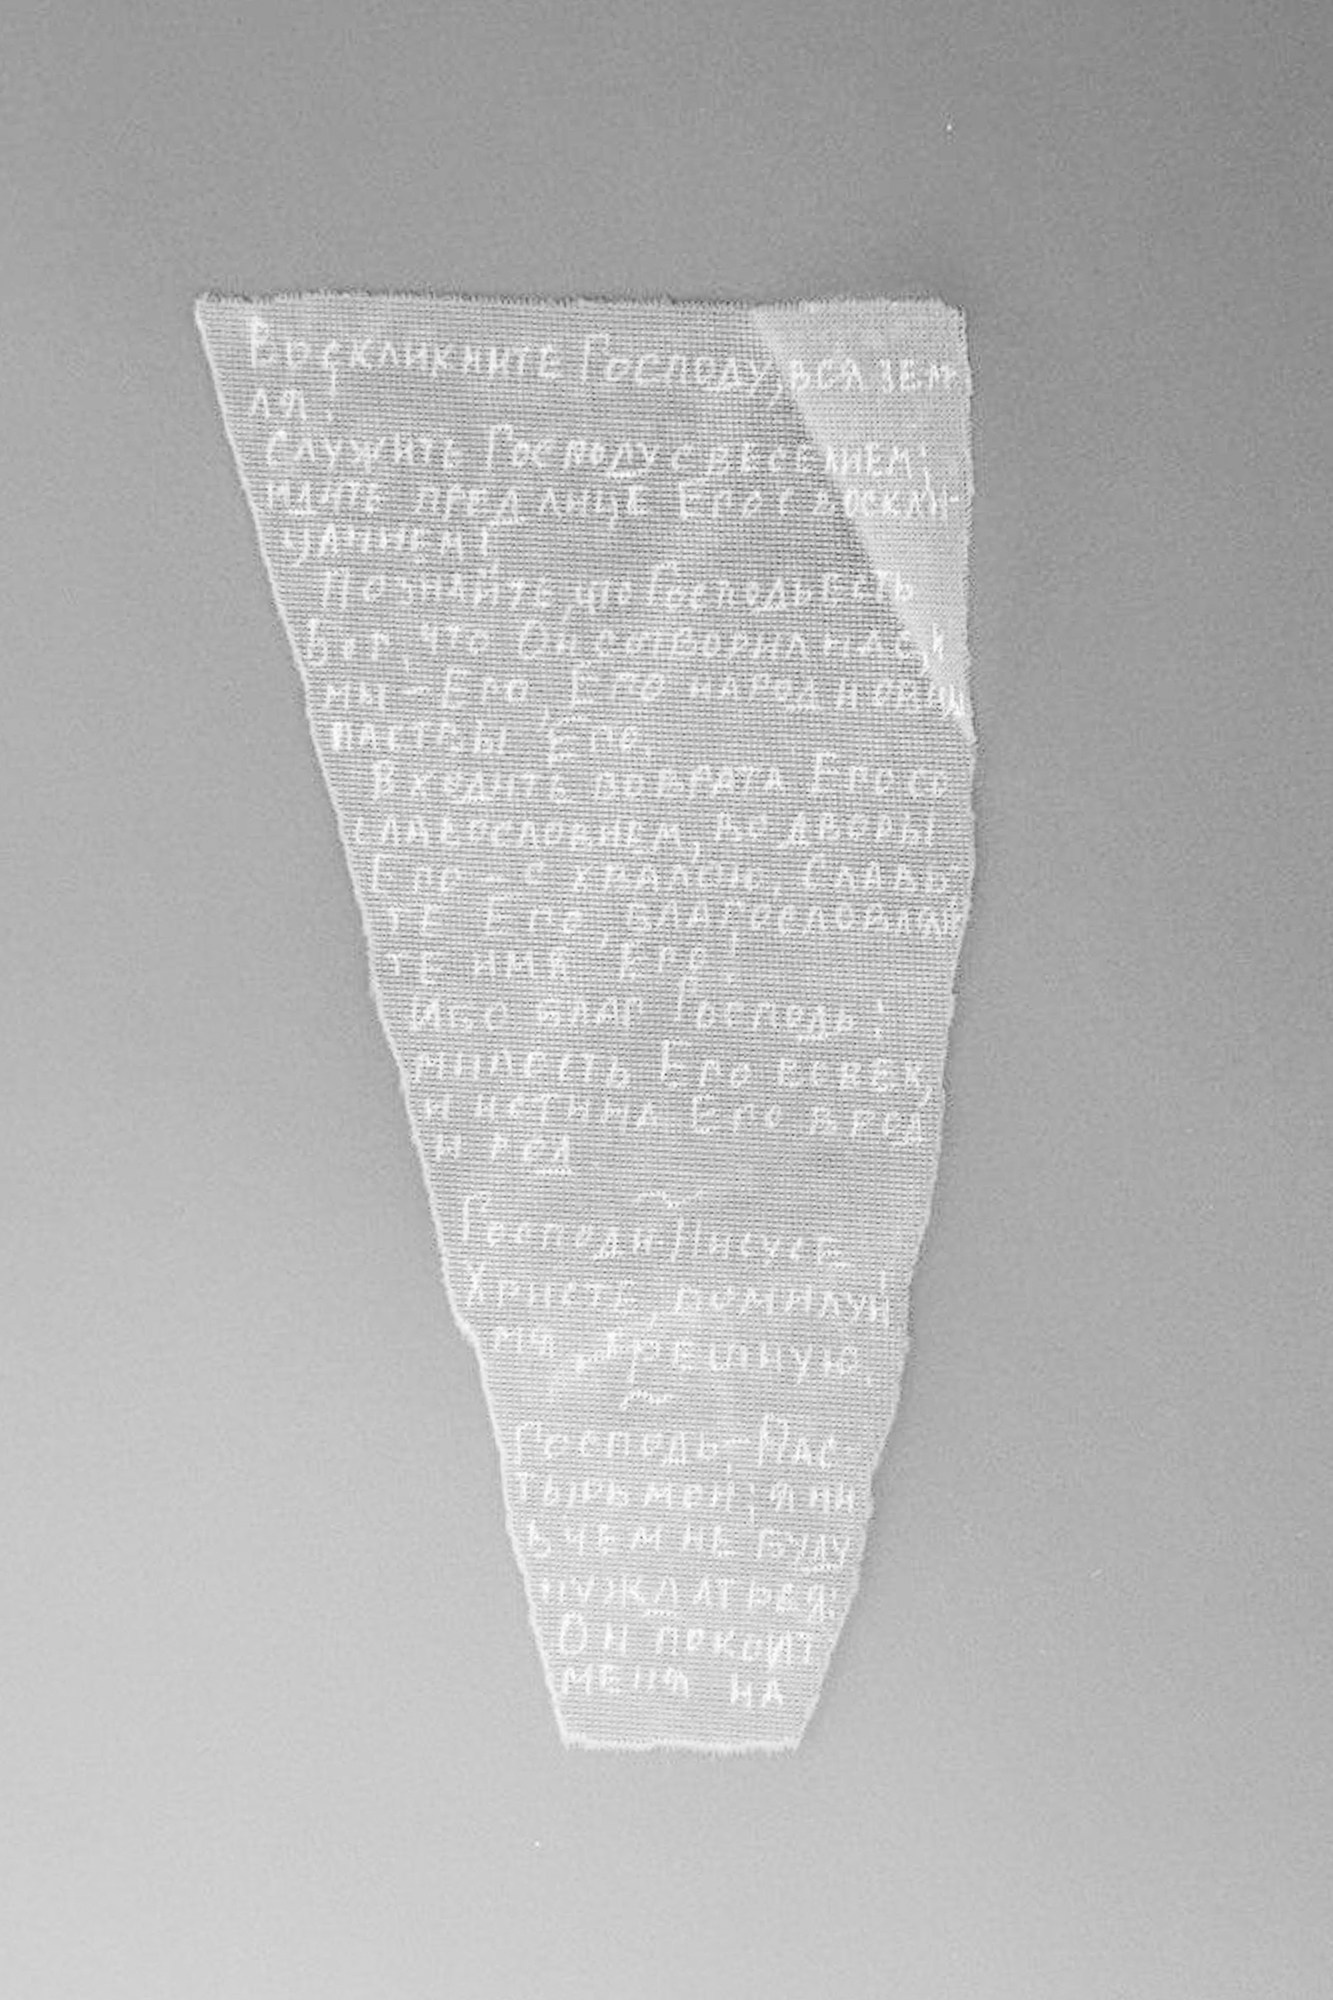 Воскликните Господу, вся зем-
ля!
Служите Господу с веселием;
идите пред лице Его с воскли-
цанием!
Познайте, что Господь есть
Бог, что Он сотворил нас, и
мы – Его, Его народ и овцы
паствы Его.
Входите во врата Его со
славословием, во дворы
Его – с хвалою. Славь
те Его, благословляй
те имя Его!
Ибо благ Господь:
милость Его вовек,
и истина Его в род
и род
Господи Иисусе
Христе, помилуй
мя, грешную.
Господь – Пас
тырь мой; я ни
в чем не буду
нуждаться.
Он покоит
меня на